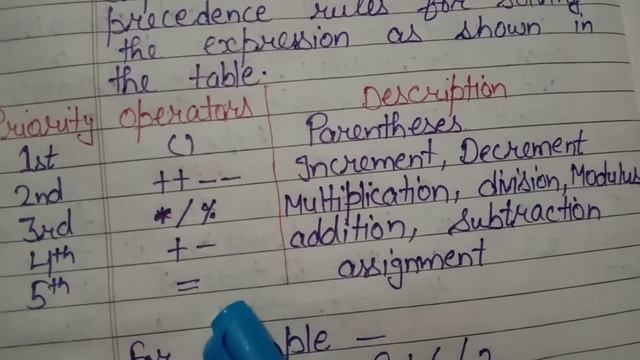 precedence rules for
the expression as shown in
the table.
Priority Operators Description
1st () Parentheses
2nd ++ -- Increment, Decrement
3rd */% Multiplication, division, Modulus
4th + - addition, subtraction
5th = assignment
For